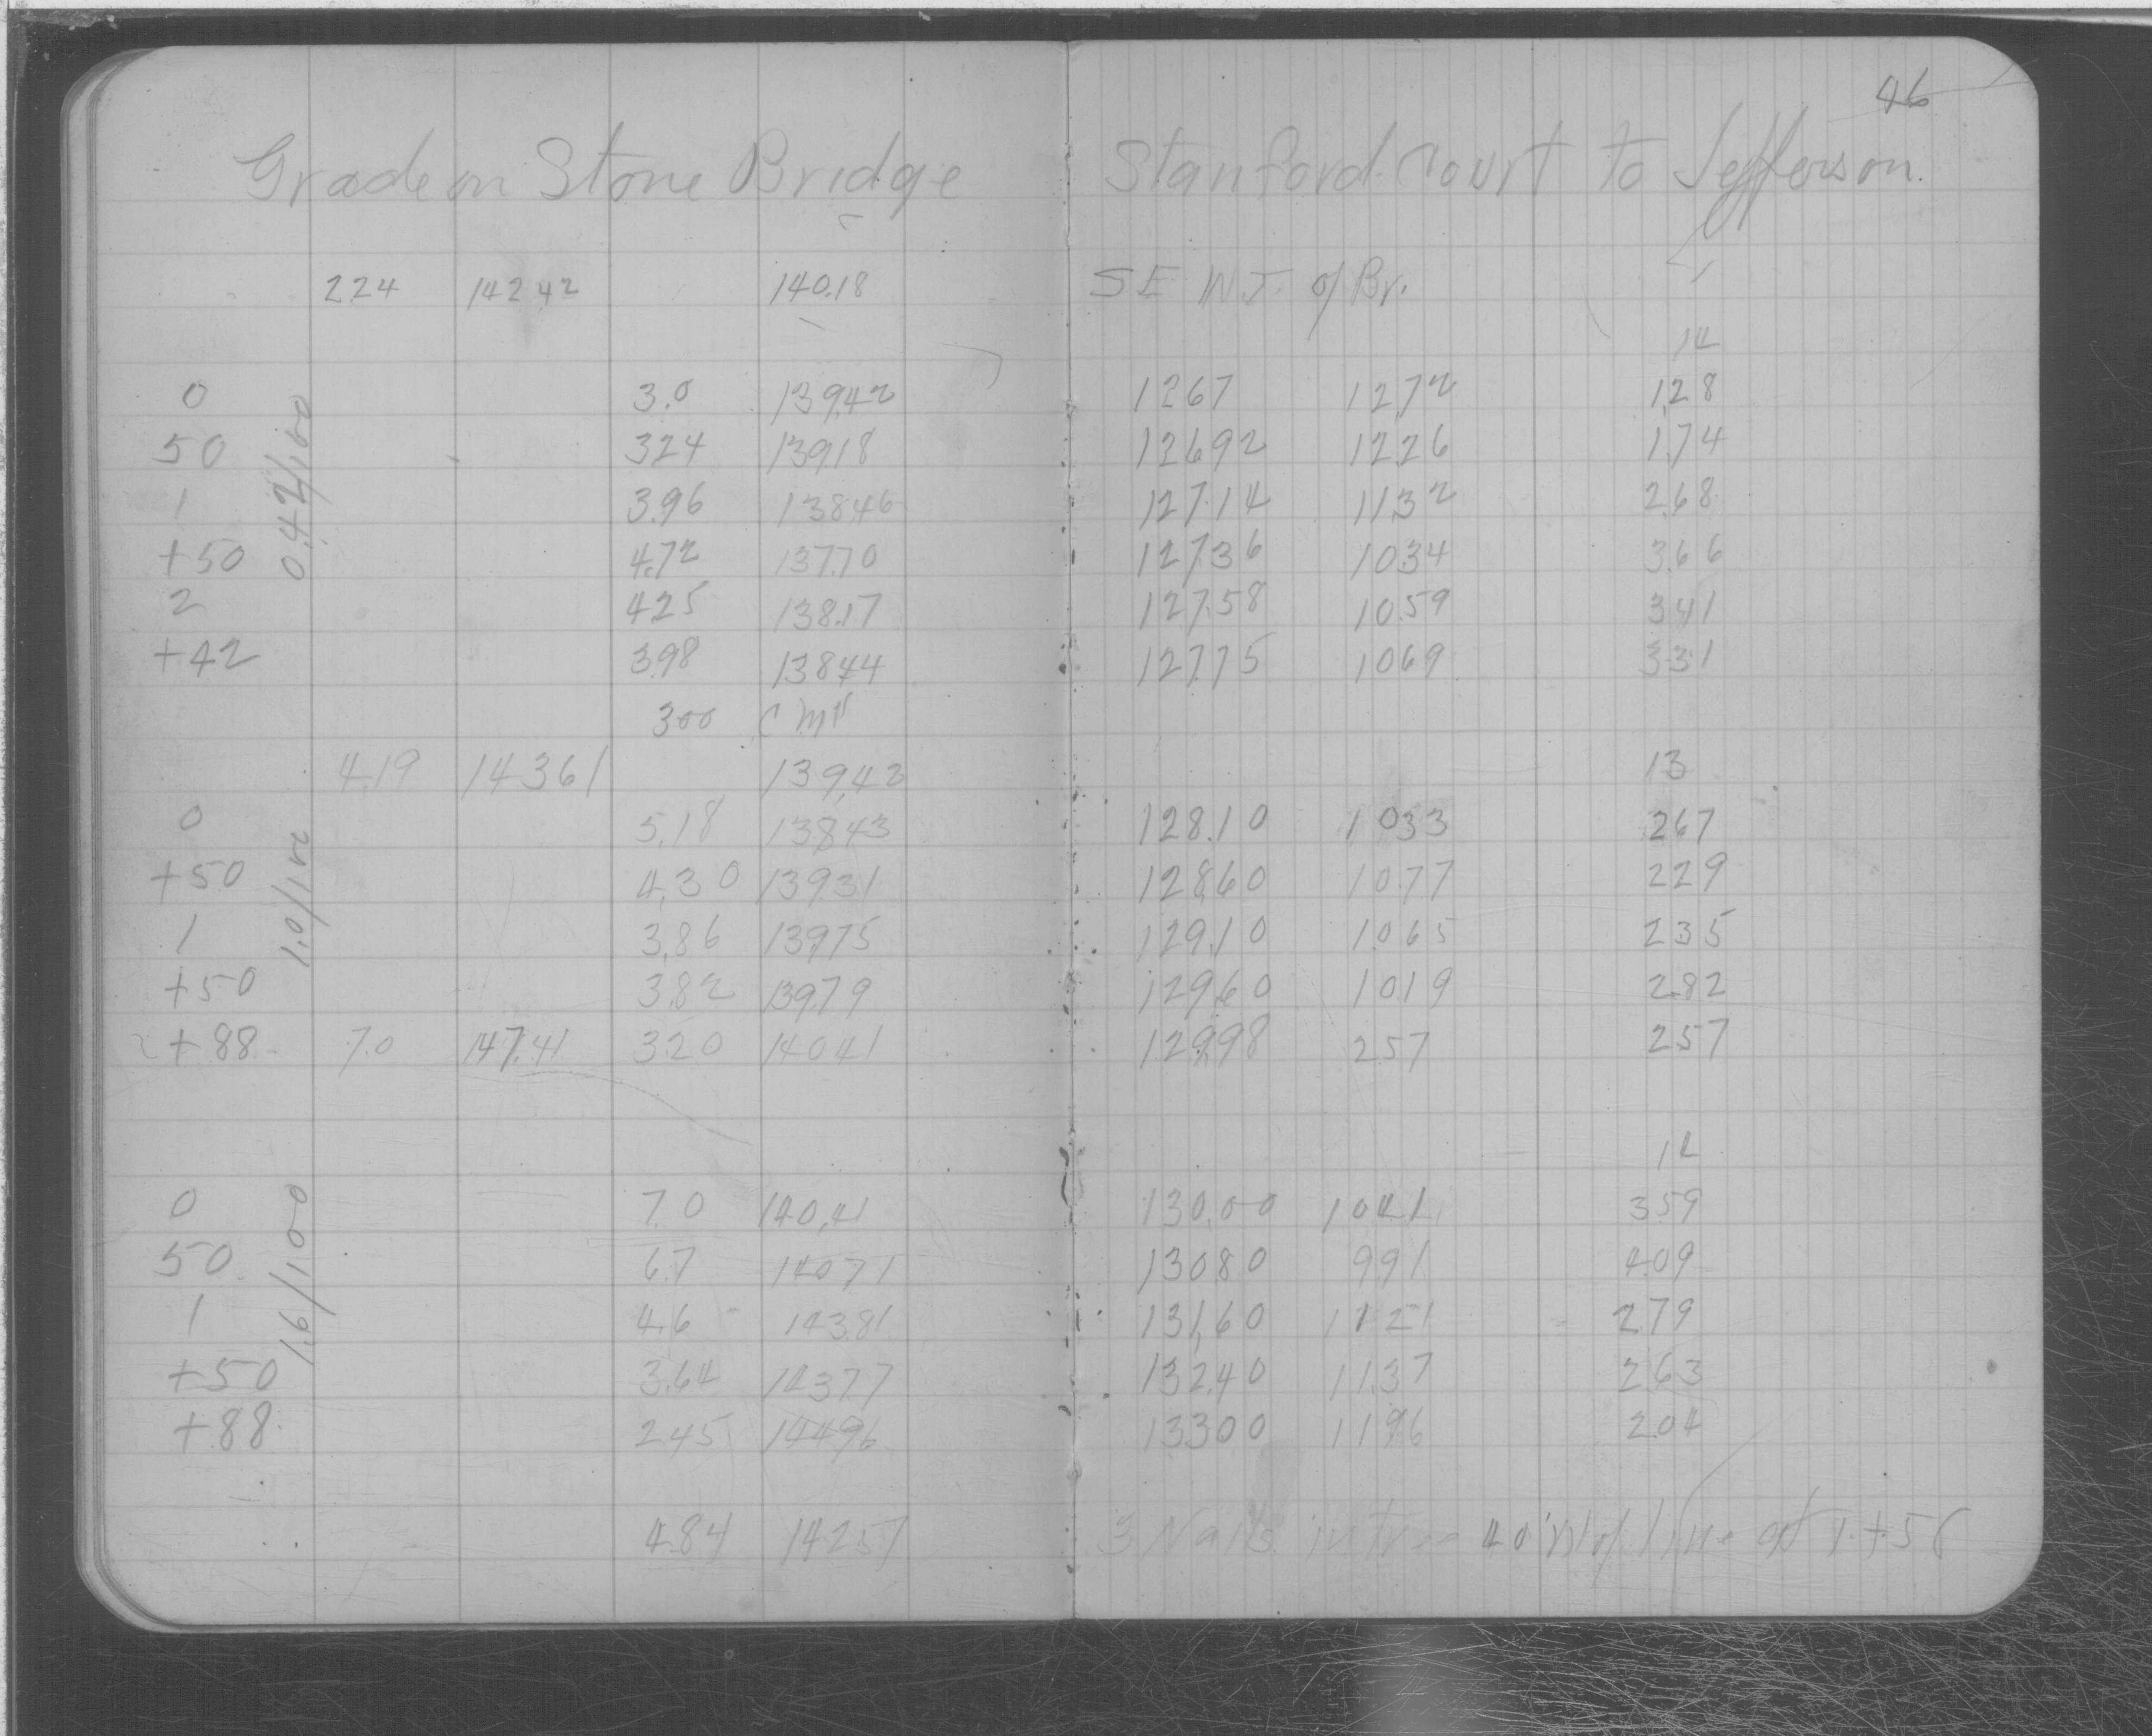 46
Grade on Stone Bridge Stanford Court to Jefferson.
224 142.42 140.18 S E W.T. of Br.
14
0 3.0 139.42 1267 12.72 1.28
50 324 139.18 12692 12.26 1.74
1 3.96 138.46 127.14 11.32 2.68
+50 4.72 137.70 127.36 10.34 3.66
2 4.25 138.17 127.58 10.59 3.41
+42 3.98 138.44 127.75 10.69 3.31
0.42/100
300 C MP
4.19 143.61 139.42 13
0 5.18 138.43 128.10 10.33 2.67
+50 4.30 139.31 128.60 10.77 2.29
1 3.86 139.75 129.10 10.65 2.35
+50 3.82 139.79 129.60 10.19 2.82
+88 7.0 147.41 3.20 140.41 129.98 257 257
1.0/100
14
0 7.0 140.41 130.00 10.41 3.59
50 6.7 140.71 130.80 9.91 4.09
1 4.6 143.81 131.60 11.21 2.79
+50 3.64 143.77 132.40 11.37 2.63
+88 2.45 144.96 133.00 11.96 2.04
1.6/100
4.84 142.57 3 Nails in tree 40' of line at 1+56